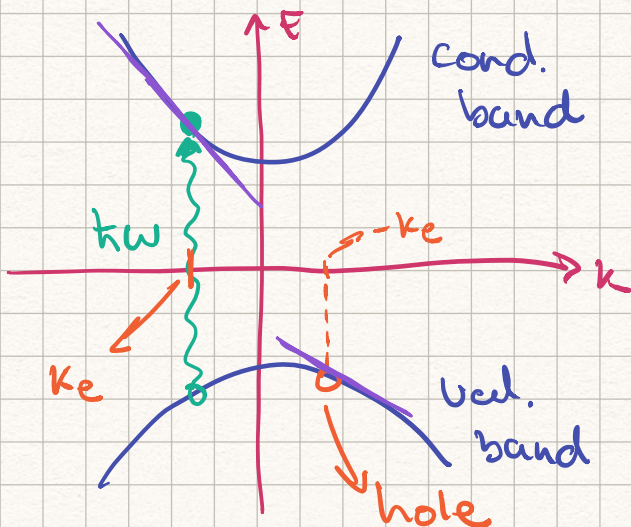 E
cond.
band
ħω
-ke
k
ke
val.
band
hole